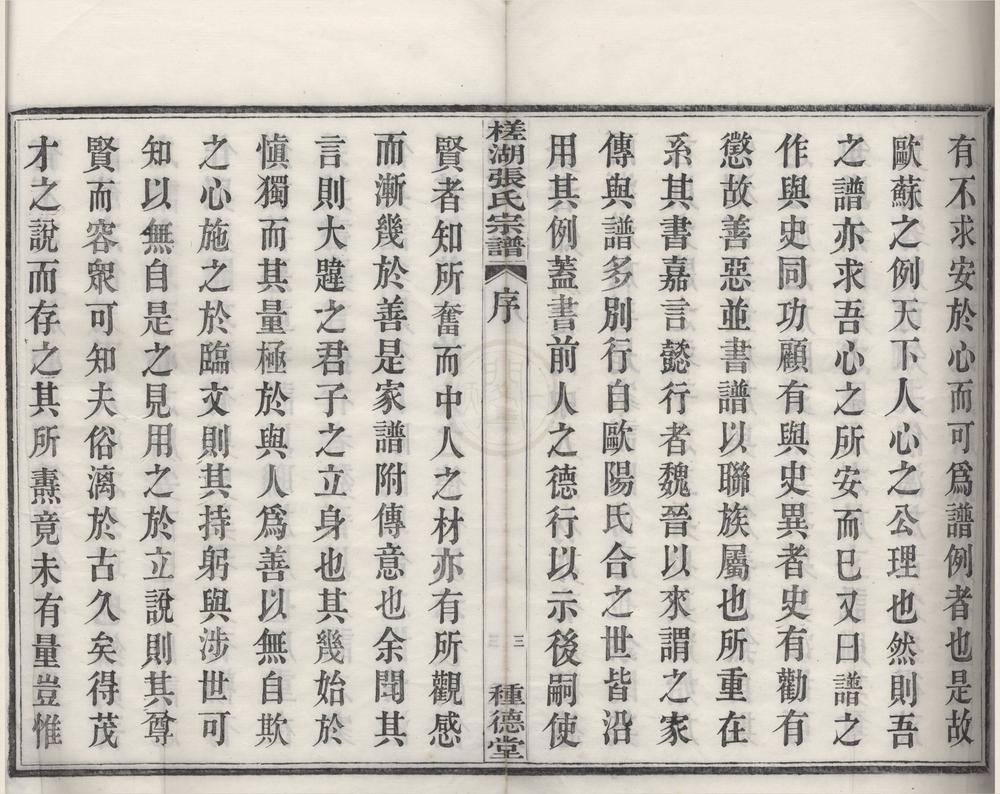 有不求安於心而可爲譜例者也是故
歐蘇之例天下人心之公理也然則吾
之譜亦求吾心之所安而已又曰譜之
作與史同功顧有與史異者史有勸有
懲故善惡並書譜以聯族屬也所重在
系其書嘉言懿行者魏晉以來謂之家
傳與譜多別行自歐陽氏合之世皆沿
用其例蓋書前人之德行以示後嗣使
槎湖張氏宗譜 序 三 種德堂
賢者知所奮而中人之材亦有所觀感
而漸幾於善是家譜附傳意也余聞其
言則大韙之君子之立身也其幾始於
慎獨而其量極於與人爲善以無自欺
之心施之於臨文則其持躬與涉世可
知以無自是之見用之於立說則其尊
賢而容衆可知夫俗漓於古久矣得茂
才之說而存之其所燾竟未有量豈惟